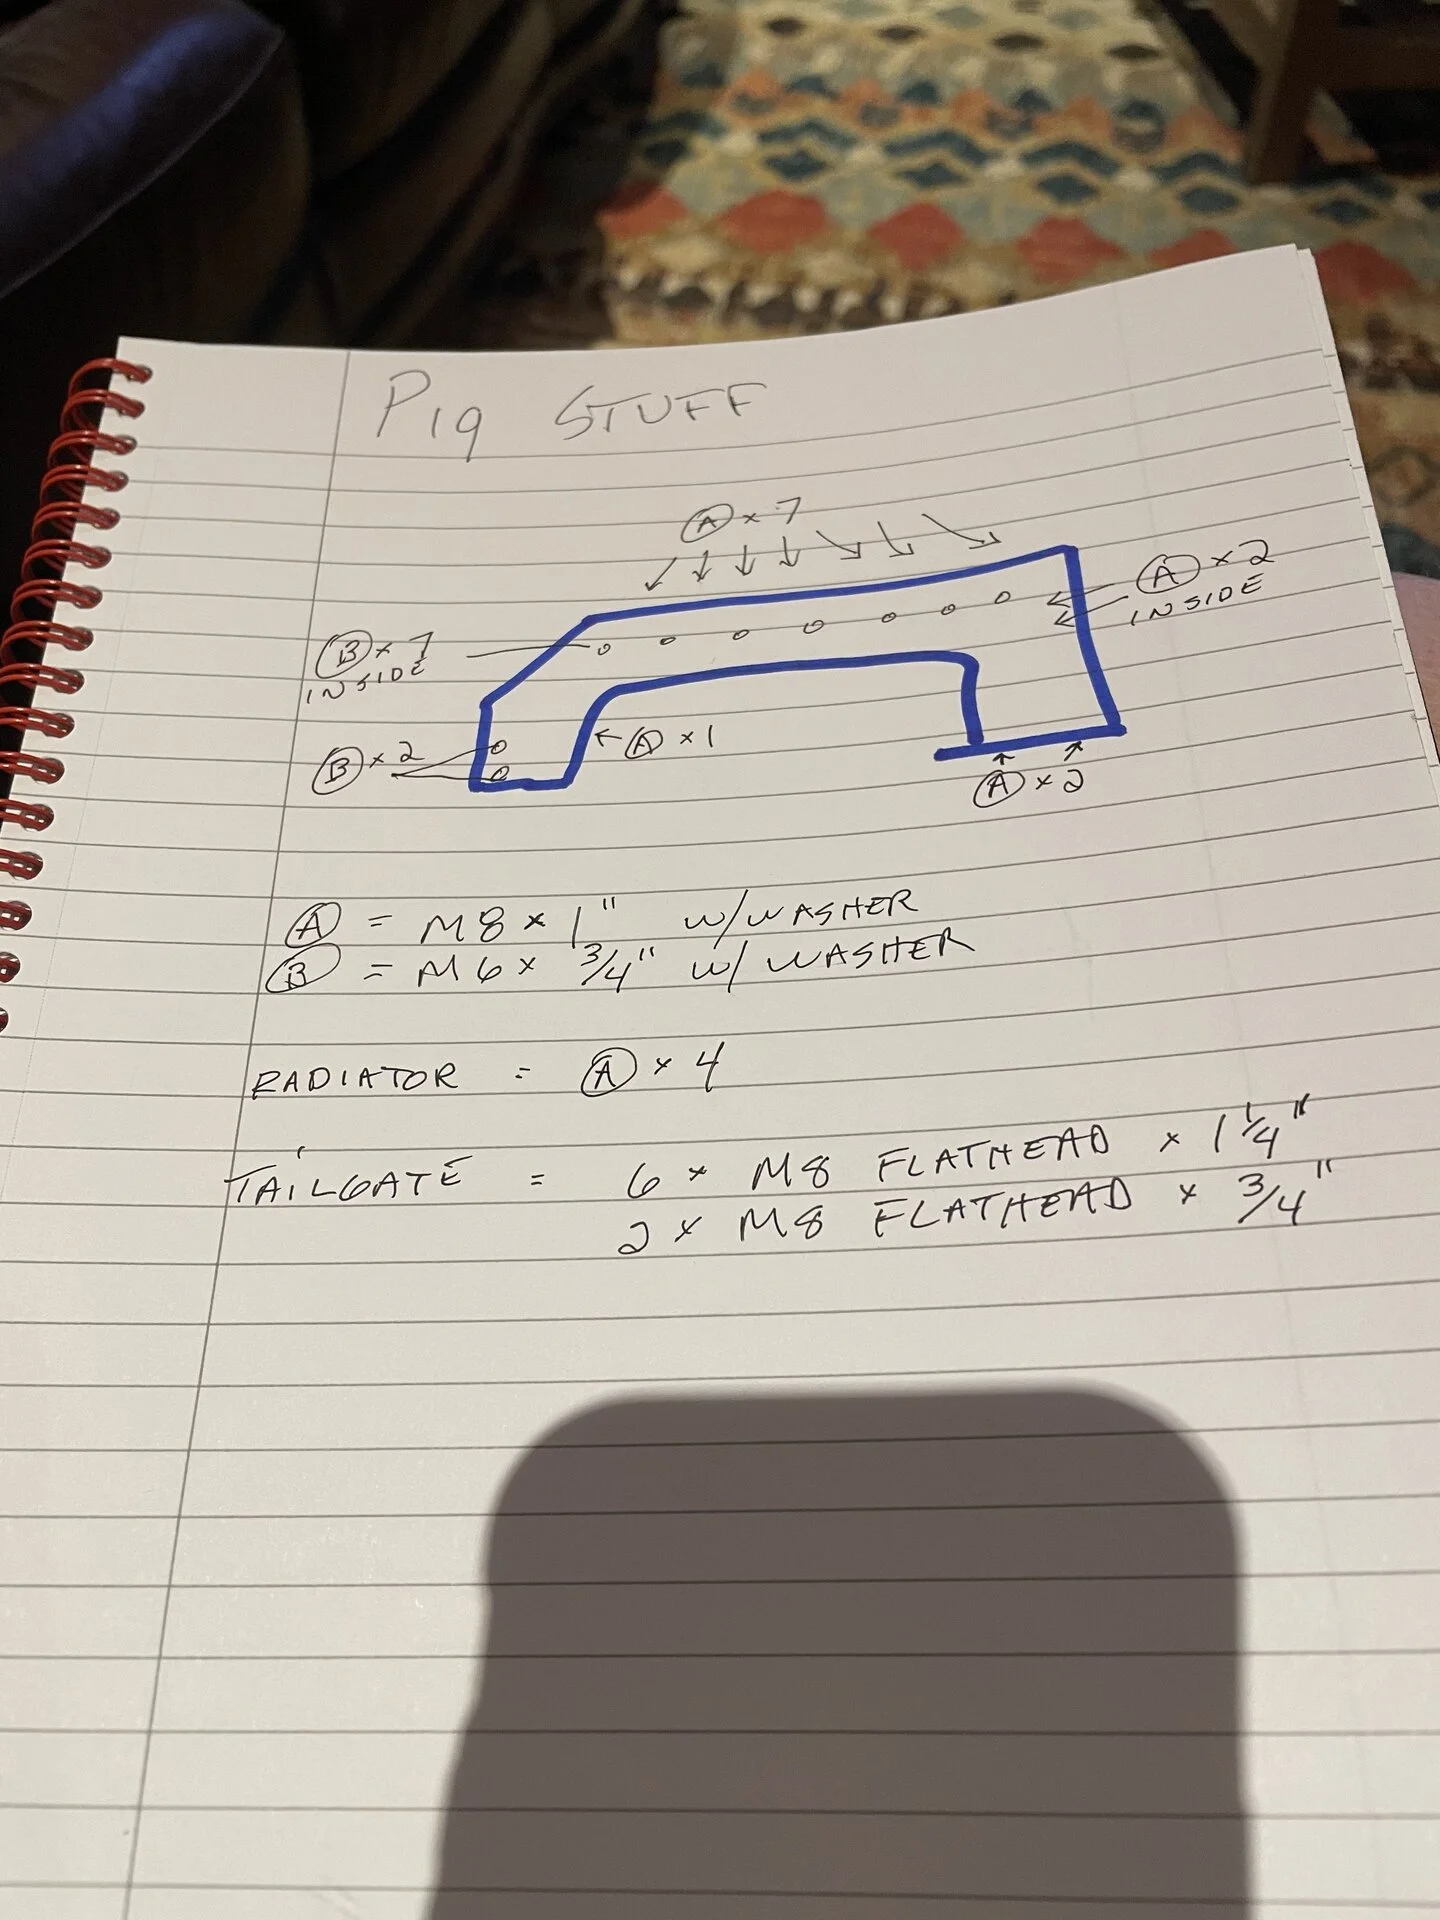 Pig STUFF
Ⓐ x 7
Ⓐ x 2
INSIDE
Ⓑ x 7
INSIDE
Ⓑ x 2
Ⓐ x 1
Ⓐ x 2
Ⓐ = M8 x 1" w/WASHER
Ⓑ = M6 x 3/4" w/ WASHER
RADIATOR = Ⓐ x 4
TAiLGATE = 6 x M8 FLATHEAD x 1 1/4"
2 x M8 FLATHEAD x 3/4"